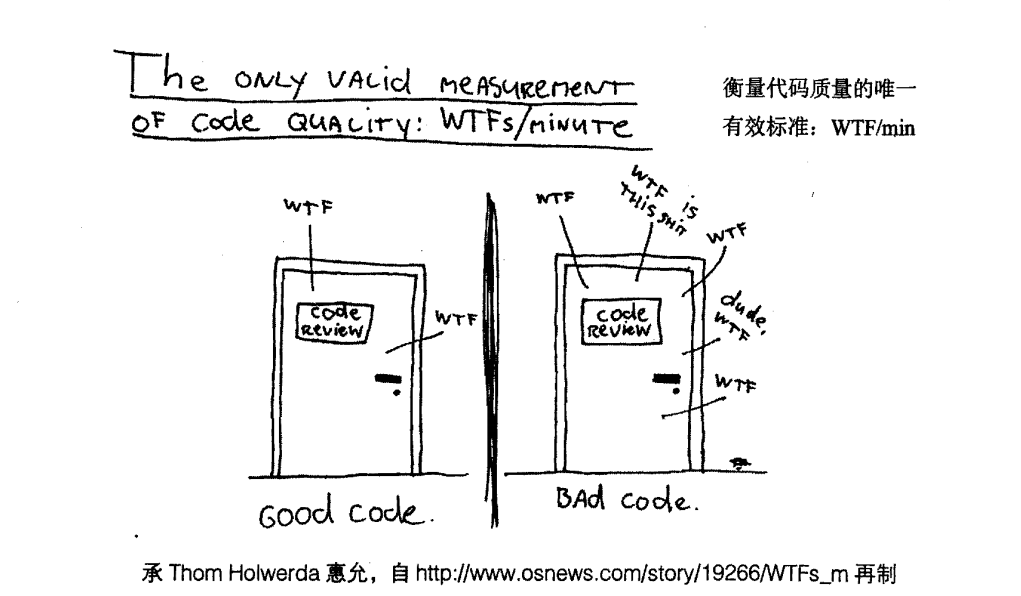 The ONLY VALid MEASUREMENT
OF Code QUALITY: WTFs/MINUTE
衡量代码质量的唯一
有效标准：WTF/min
WTF
Code
REVIEW
WTF
GOOD Code.
WTF
WTF is
THIS SHIT
WTF
Code
REVIEW
dude,
WTF
WTF
BAd Code.
承 Thom Holwerda 惠允，自 http://www.osnews.com/story/19266/WTFs_m 再制